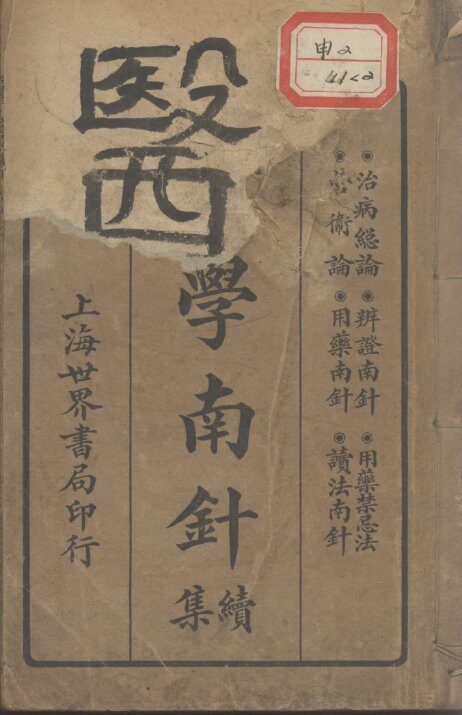 ◉治病総論◉辨證南針◉用藥禁忌法
◉營衛論◉用藥南針◉讀法南針
醫學南針
續集
上海世界書局印行